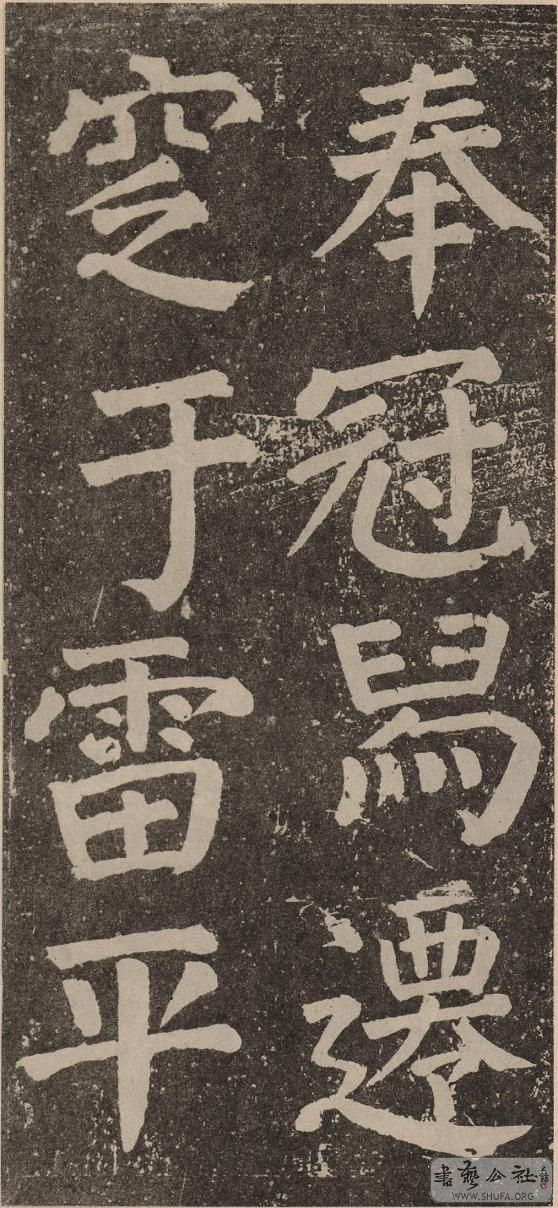 奉冠舄遷
窆于雷平
書藝公社
WWW.SHUFA.ORG